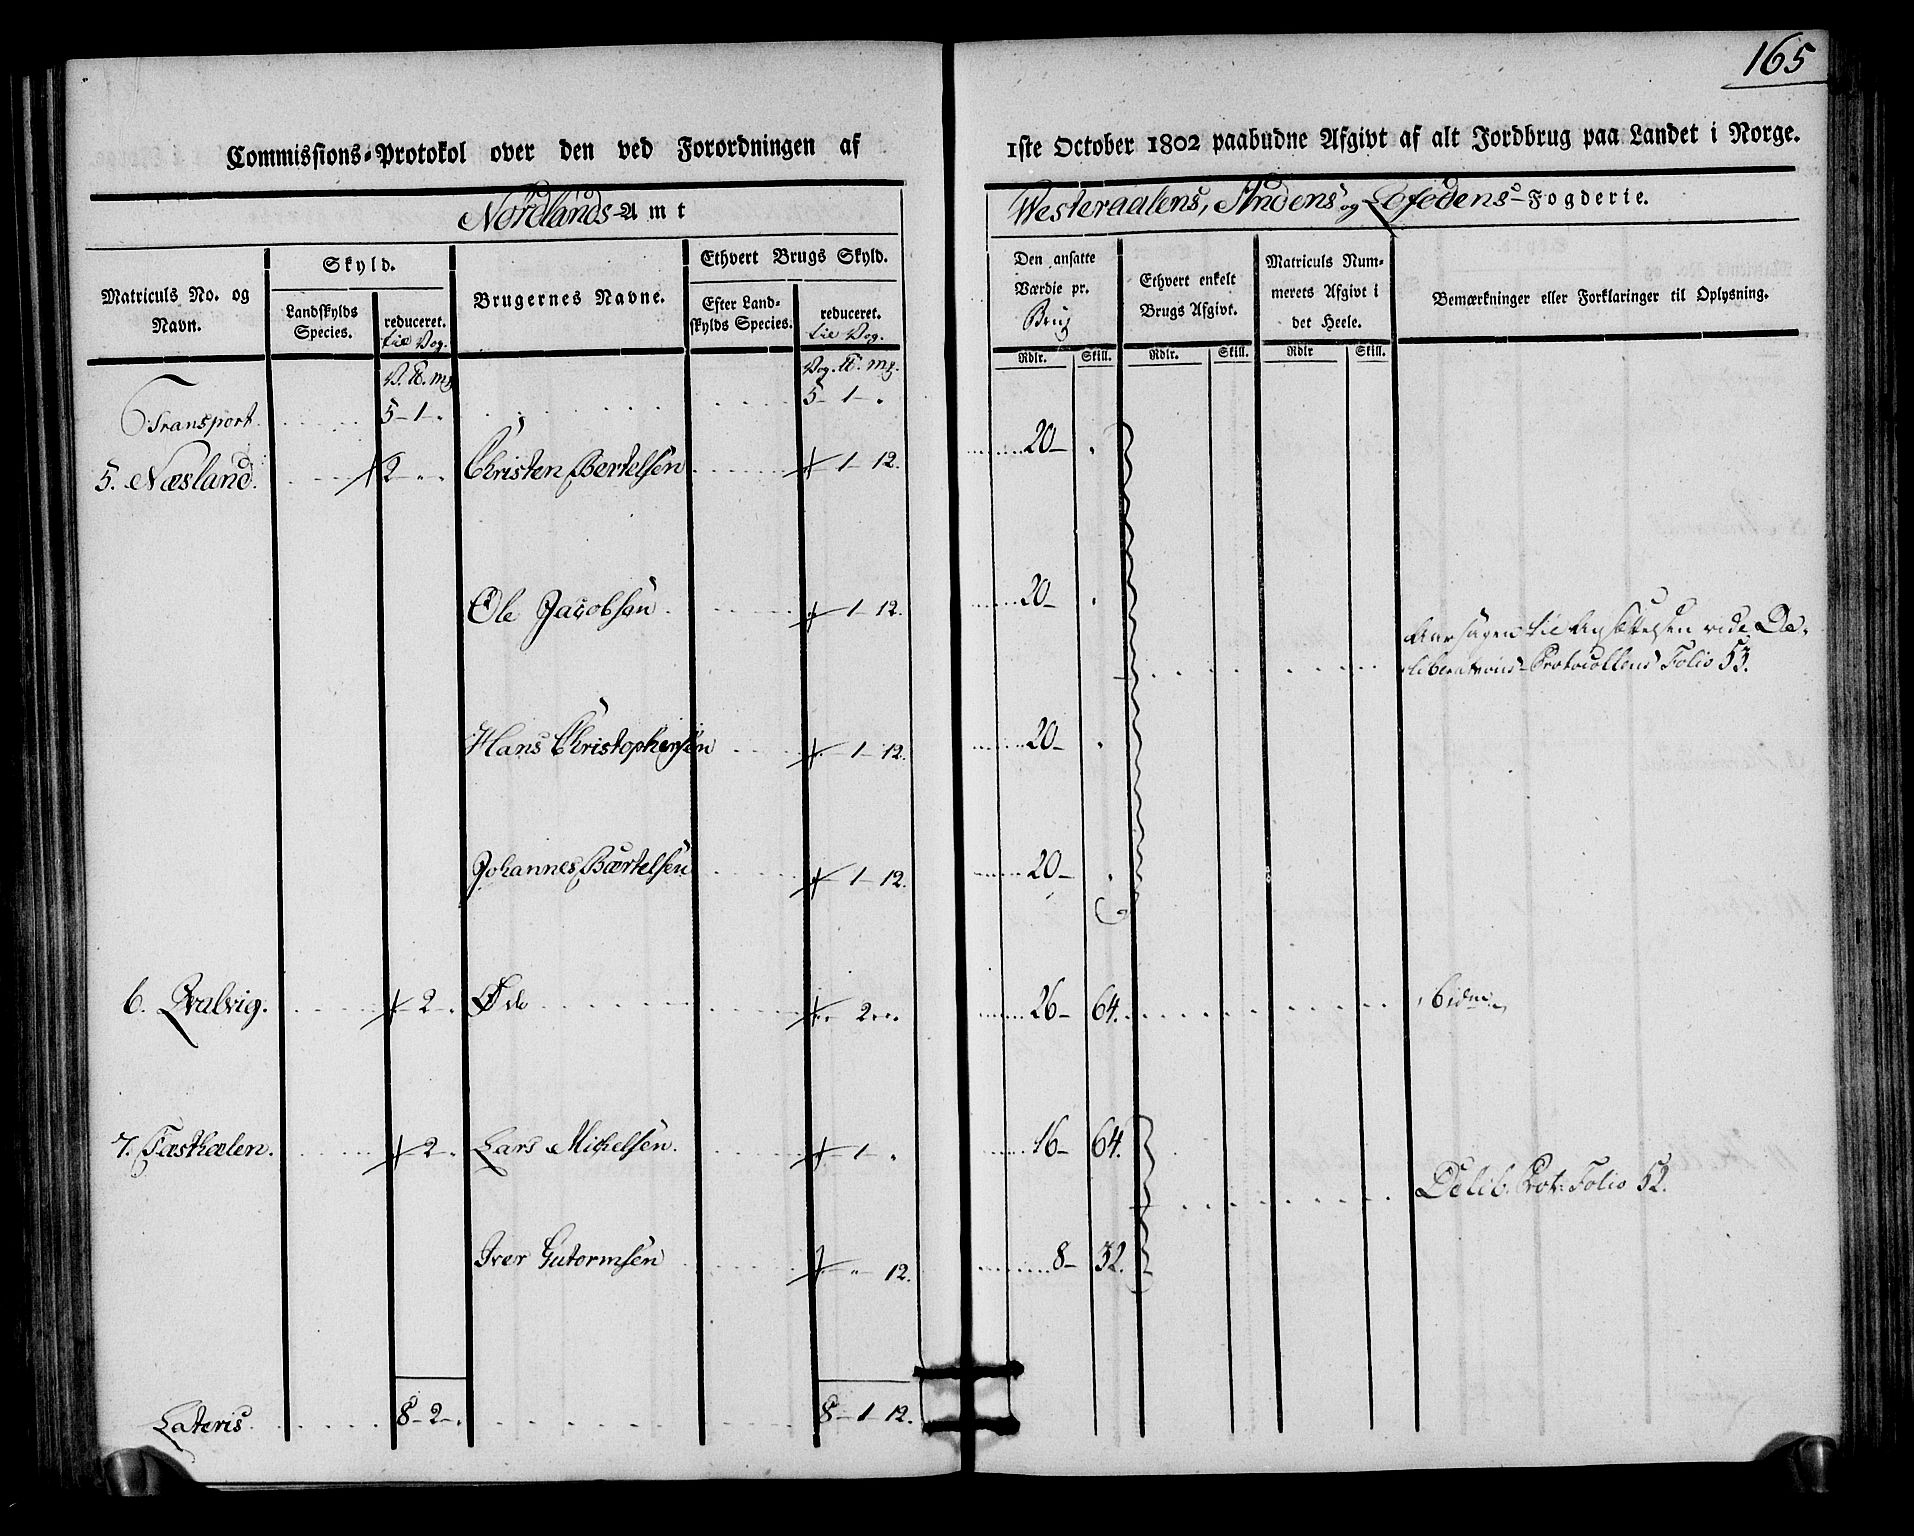 165
Commissions-Protokol over den ved Forordningen af 1ste October 1802 paabudne Afgivt af alt Jordbrug paa Landet i Norge.
Nordlands-Amt
Westeraalens, Andens og Lofodens-Fogderie.
Matriculs No. og Navn.
Skyld.
Landskylds Species.
reduceret. til Vog.
Brugernes Navne.
Ethvert Brugs Skyld.
Efter Landskylds Species.
reduceret. til Vog.
Den ansatte Værdie pr. Brug
Ethvert enkelt Brugs Afgivt.
Matriculs Nummerets Afgivt i det Heele.
Bemærkninger eller Forklaringer til Oplysning.
Rdlr. Skill. Rdlr. Skill. Rdlr Skill.
V. ℔. mg. Vog. ℔. mg.
Transport 5-1-. 5-1-.
5. Næsland. 2 Christen Bertelsen 1-12. 20-
Ole Jacobsen 1-12. 20-
Aarsagen til Ansættelsen vide De-
liberations-Protocollens Folio 53.
Hans Christophersen 1-12. 20-
Johannes Bærtelsen 1-12. 20-
6. Qvalvig. 2 Øde 2 26-64. ibidm
7. Fæsthælen. 2 Lars Michelsen. 1 16-64.
Delib. Prot: Folio 52.
Iver Gutormsen 12. 8-32.
Lateris 8-2-. 8-1-12.